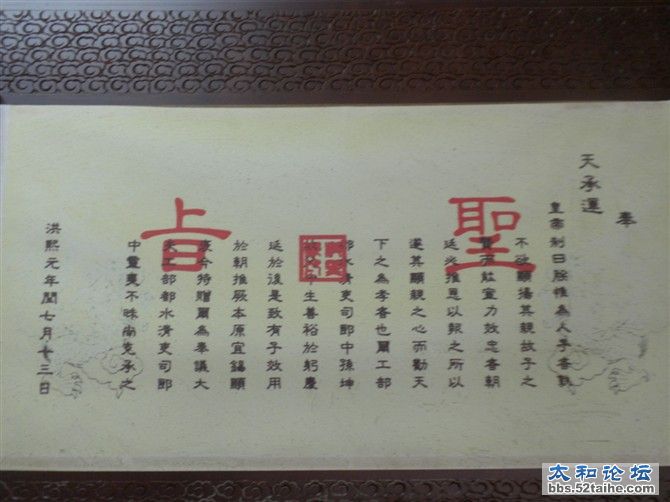 聖旨
奉
天承運
皇帝制曰朕惟為人子者孰
不欲顯揚其親故子之
賢而能宣力效忠者朝
廷必推恩以報之所以
遂其顯親之心而勸天
下之為孝者也爾工部
都水清吏司郎中孫坤
生善裕於躬慶
延於後是致有子效用
於朝推厥本原宜錫顯
今特贈爾為奉議大
夫工部都水清吏司郎
中靈爽不昧尚克承之
洪熙元年閏七月十三日
太和论坛
bbs.52taihe.com